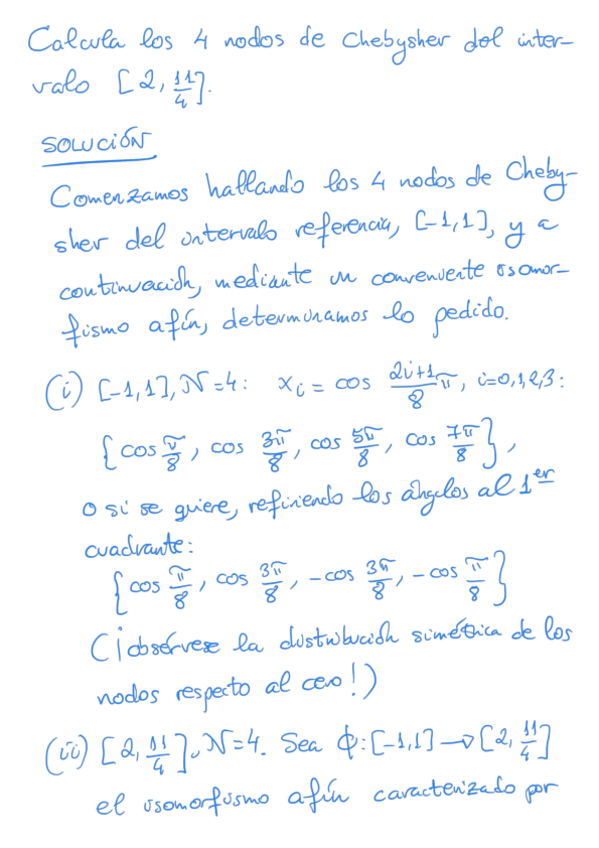 Calcula los 4 nodos de Chebyshev del inter-
valo [2, 11/4].
SOLUCIÓN
Comenzamos hallando los 4 nodos de Cheby-
shev del intervalo referencia, [-1,1], y a
continuación, mediante un conveniente isomor-
fismo afín, determinamos lo pedido.
(i) [-1,1], N=4: xᵢ = cos (2i+1)/8 π, i=0,1,2,3:
{cos π/8, cos 3π/8, cos 5π/8, cos 7π/8},
o si se quiere, refiriendo los ángulos al 1er
cuadrante:
{cos π/8, cos 3π/8, -cos 3π/8, -cos π/8}
(¡obsérvese la distribución simétrica de los
nodos respecto al cero!)
(ii) [2, 11/4], N=4. Sea ϕ: [-1,1] → [2, 11/4]
el isomorfismo afín caracterizado por